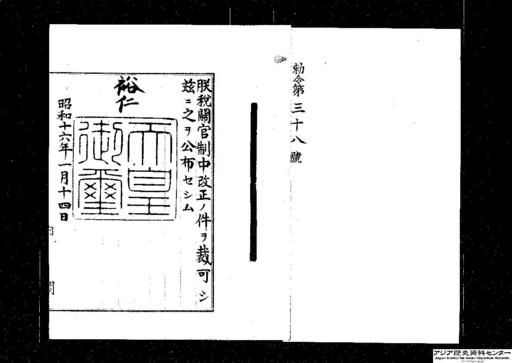 勅令第三十八號
朕税關官制中改正ノ件ヲ裁可シ
茲ニ之ヲ公布セシム
裕仁
天皇御璽
昭和十六年一月十四日
アジア歴史資料センター
Japan Center for Asian Historical Records